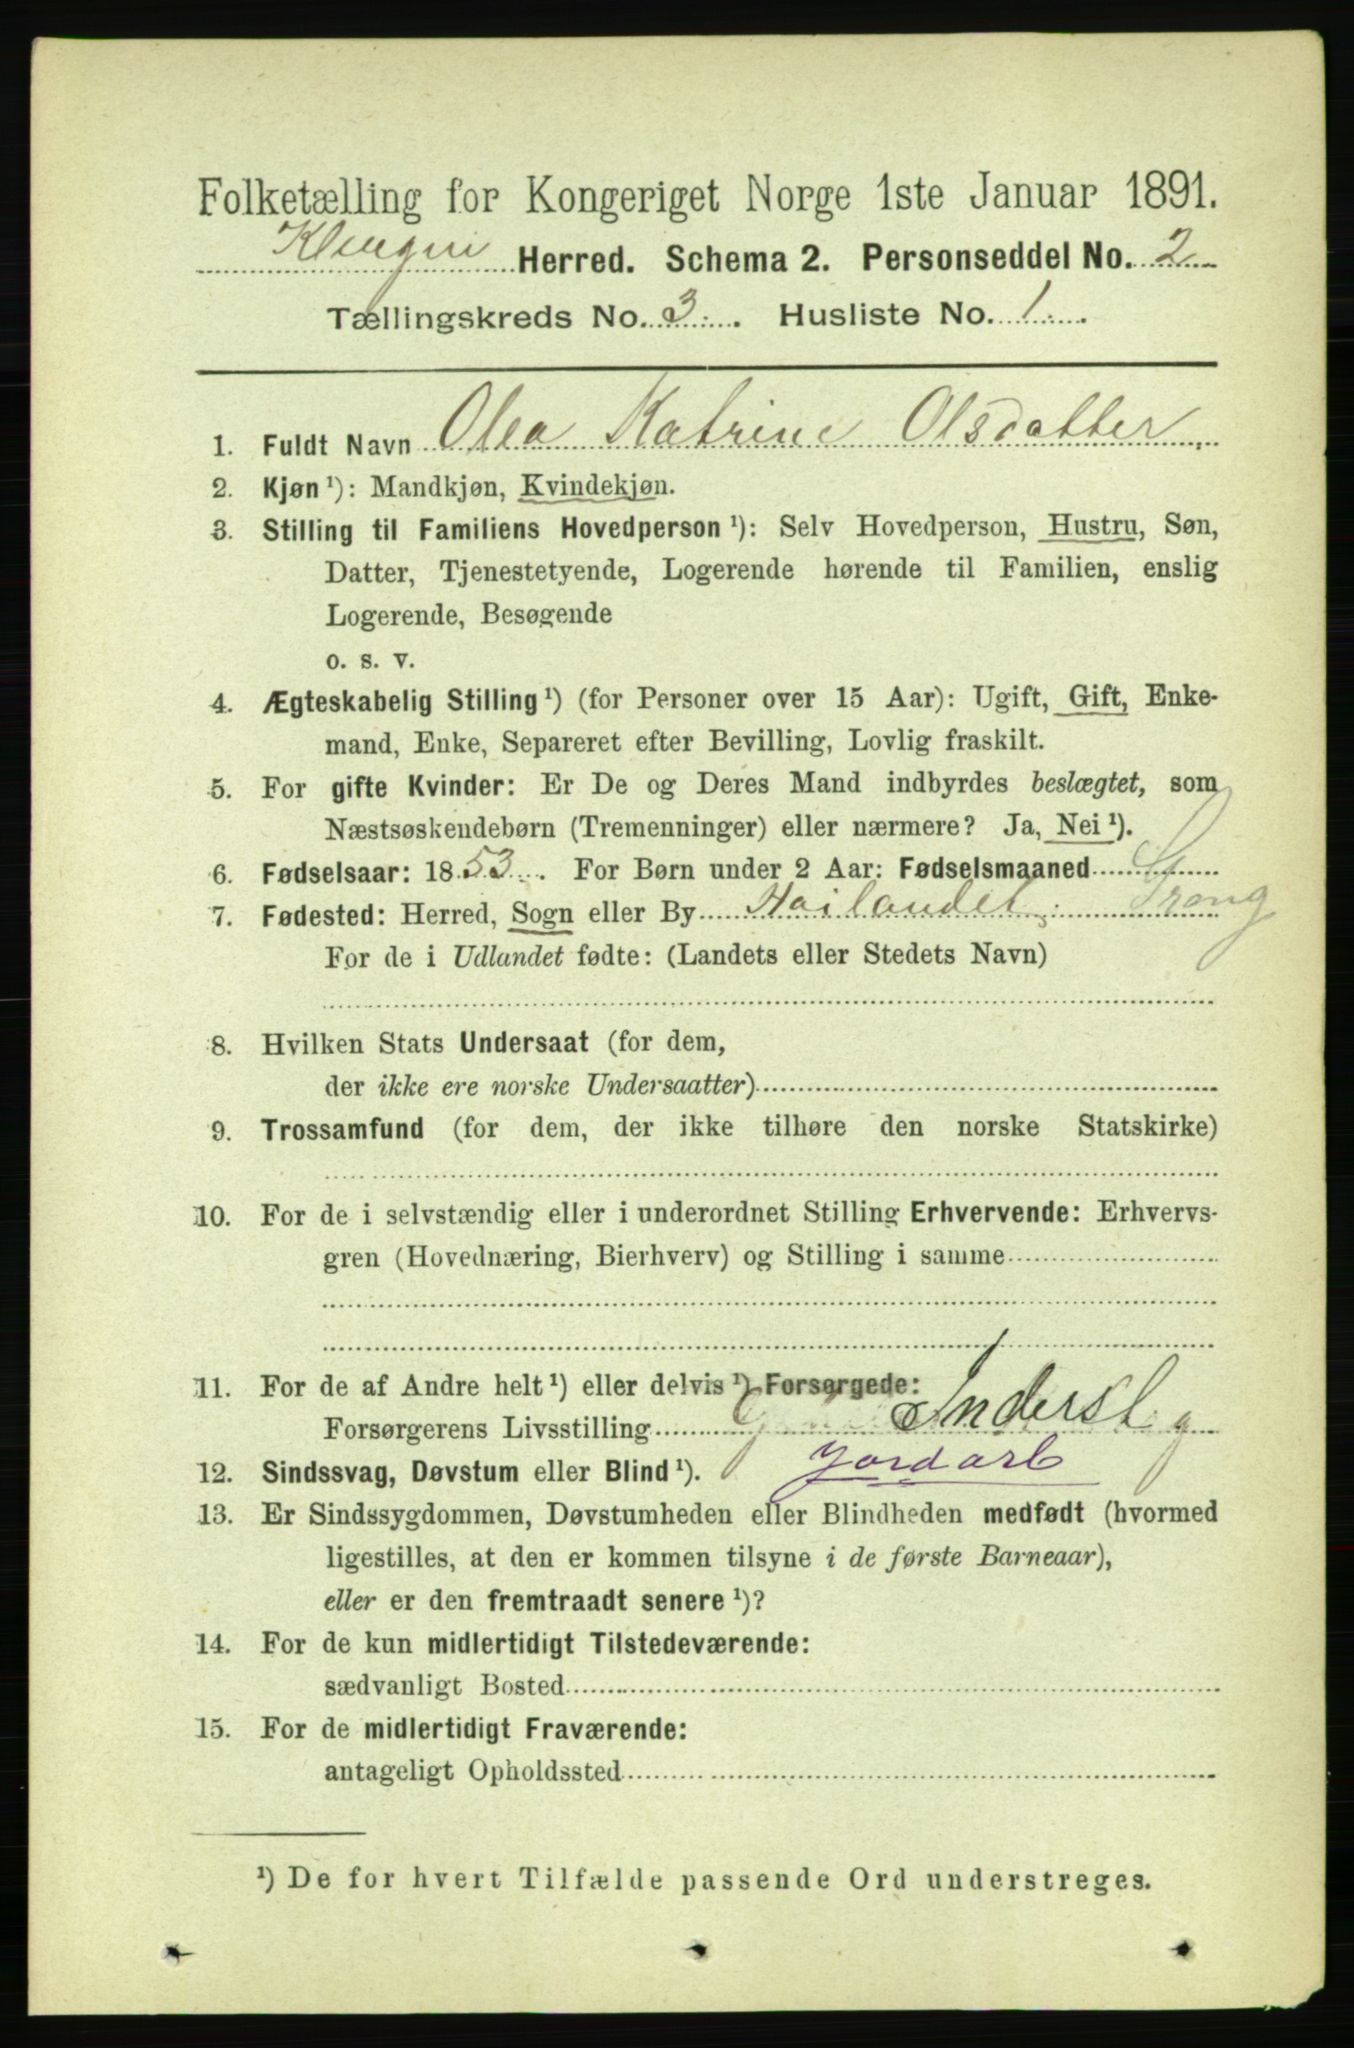 Folketælling for Kongeriget Norge 1ste Januar 1891.
Klingen Herred. Schema 2. Personseddel No. 2
Tællingskreds No. 3. Husliste No. 1.
1. Fuldt Navn Olea Katrine Olsdatter
2. Kjøn ¹): Mandkjøn, Kvindekjøn.
3. Stilling til Familiens Hovedperson ¹): Selv Hovedperson, Hustru, Søn,
Datter, Tjenestetyende, Logerende hørende til Familien, enslig
Logerende, Besøgende
o. s. v.
4. Ægteskabelig Stilling ¹) (for Personer over 15 Aar): Ugift, Gift, Enke-
mand, Enke, Separeret efter Bevilling, Lovlig fraskilt.
5. For gifte Kvinder: Er De og Deres Mand indbyrdes beslægtet, som
Næstsøskendebørn (Tremenninger) eller nærmere? Ja, Nei ¹).
6. Fødselsaar: 1853. For Børn under 2 Aar: Fødselsmaaned
7. Fødested: Herred, Sogn eller By Hoilandet. Grong
For de i Udlandet fødte: (Landets eller Stedets Navn)
8. Hvilken Stats Undersaat (for dem,
der ikke ere norske Undersaatter)
9. Trossamfund (for dem, der ikke tilhøre den norske Statskirke)
10. For de i selvstændig eller i underordnet Stilling Erhvervende: Erhvervs-
gren (Hovednæring, Bierhverv) og Stilling i samme
11. For de af Andre helt ¹) eller delvis ¹) Forsørgede:
Forsørgerens Livsstilling Inderst
Jordarb
12. Sindssvag, Døvstum eller Blind ¹).
13. Er Sindssygdommen, Døvstumheden eller Blindheden medfødt (hvormed
ligestilles, at den er kommen tilsyne i de første Barneaar),
eller er den fremtraadt senere ¹)?
14. For de kun midlertidigt Tilstedeværende:
sædvanligt Bosted
15. For de midlertidigt Fraværende:
antageligt Opholdssted
¹) De for hvert Tilfælde passende Ord understreges.